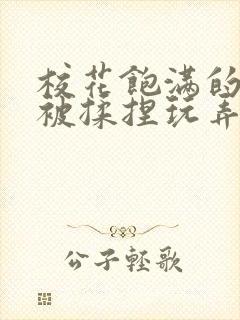 校花飽滿的
被揉捏玩弄
公子輕歌